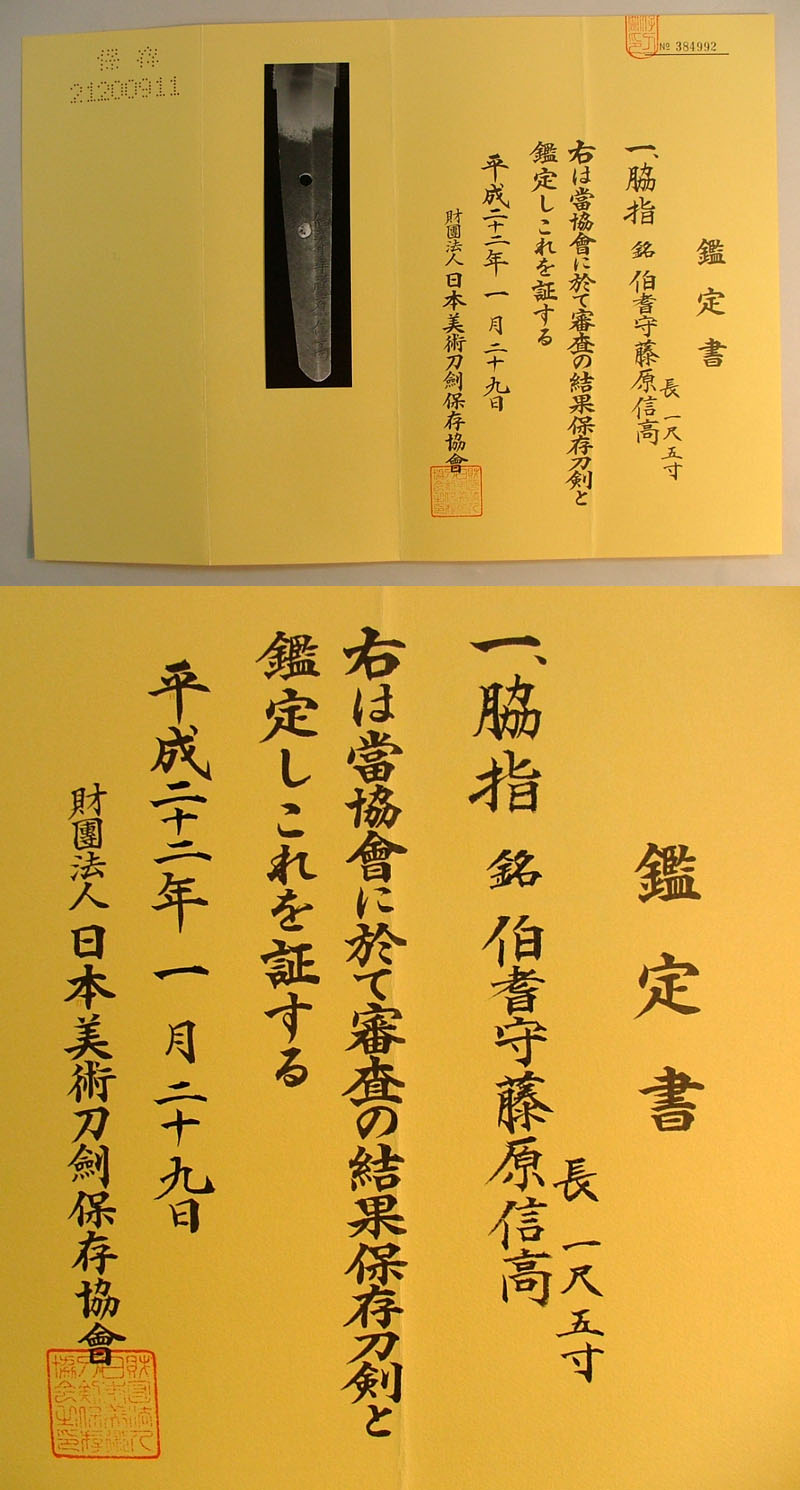 保存
21200911
№ 384992
鑑定書
一、脇指 銘 伯耆守藤原信高
長 一尺五寸
右は當協會に於て審査の結果保存刀剣と
鑑定しこれを証する
平成二十二年 一月二十九日
財團法人 日本美術刀劍保存協會
鑑定書
一、脇指 銘 伯耆守藤原信高
長 一尺五寸
右は當協會に於て審査の結果保存刀剣と
鑑定しこれを証する
平成二十二年 一月二十九日
財團法人 日本美術刀劍保存協會